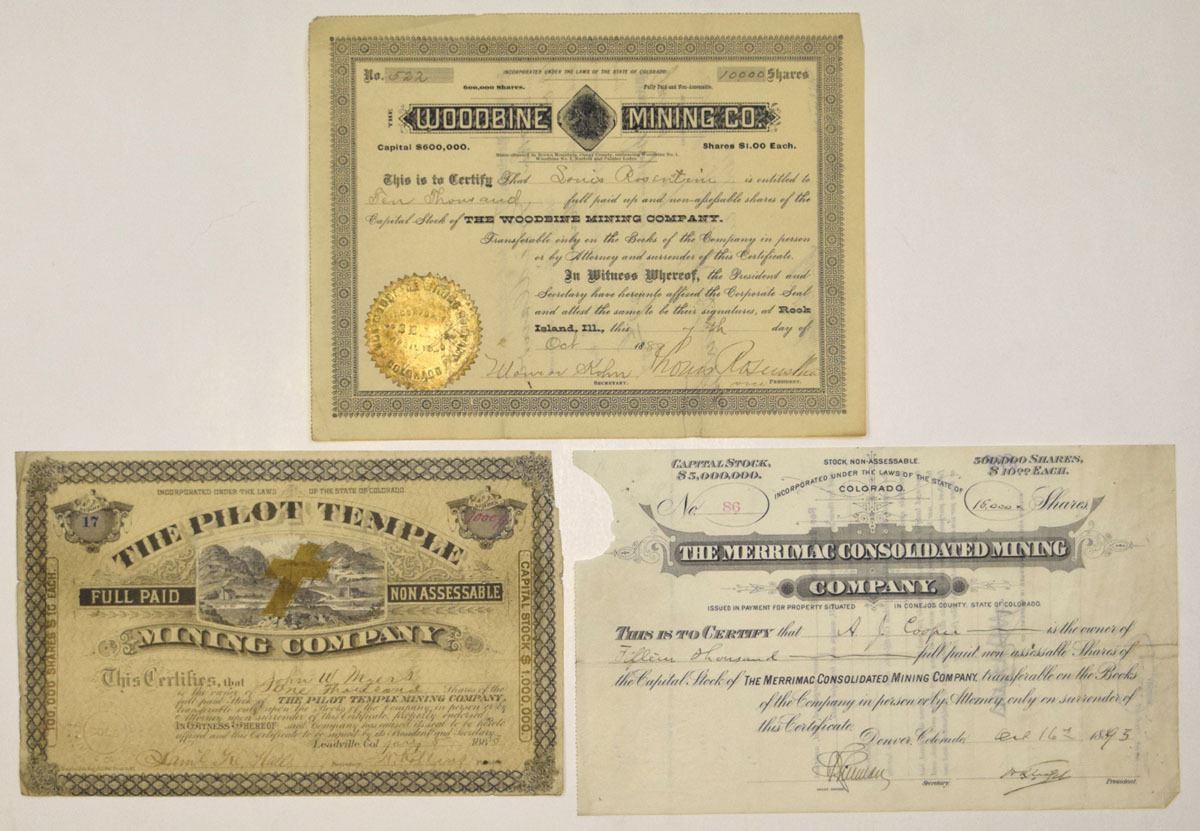 No. 522
INCORPORATED UNDER THE LAWS OF THE STATE OF COLORADO.
10000 Shares
600,000 Shares.
Fully Paid and Non-Assessable.
THE WOODBINE MINING CO.
Capital $600,000.
Shares $1.00 Each.
Woodbine No. 2,
This is to Certify That Louis is entitled to
Ten Thousand full paid up and non-assessable shares of the
Capital Stock of THE WOODBINE MINING COMPANY.
Transferable only on the Books of the Company in person
or by Attorney and surrender of this Certificate.
In Witness Whereof, the President and
Secretary have hereunto affixed the Corporate Seal
and attest the same to be their signatures, at Rock
Island, Ill., this 7th day of
Oct 188
Kohn
SECRETARY.
Louis
vice PRESIDENT.
COLORADO
INCORPORATED UNDER THE LAWS OF THE STATE OF COLORADO.
17
THE PILOT TEMPLE
FULL PAID
NON ASSESSABLE
MINING COMPANY
100,000 SHARES $10 EACH.
CAPITAL STOCK $1,000,000.
This Certifies, that John W. Myers
is the owner of One Thousand Shares of the
full paid Stock of THE PILOT TEMPLE MINING COMPANY,
transferable only upon the Books of the Company, in person or by
Attorney upon surrender of this Certificate properly endorsed.
IN WITNESS WHEREOF said Company has caused its seal to be hereto
affixed and this Certificate to be signed by its President and Secretary.
Leadville Col. 188
Secretary
CAPITAL STOCK,
$5,000,000.
STOCK, NON-ASSESSABLE.
INCORPORATED UNDER THE LAWS OF THE STATE OF
COLORADO.
500,000 SHARES,
$10.00 EACH.
No 86
15,000 Shares
THE MERRIMAC CONSOLIDATED MINING
COMPANY.
ISSUED IN PAYMENT FOR PROPERTY SITUATED IN CONEJOS COUNTY, STATE OF COLORADO.
THIS IS TO CERTIFY that A J Cooper is the owner of
Fifteen Thousand full paid non-assessable Shares of
the Capital Stock of THE MERRIMAC CONSOLIDATED MINING COMPANY, transferable on the Books
of the Company in person or by Attorney, only on surrender of
this Certificate.
Denver, Colorado, 16 1893
Secretary.
President.